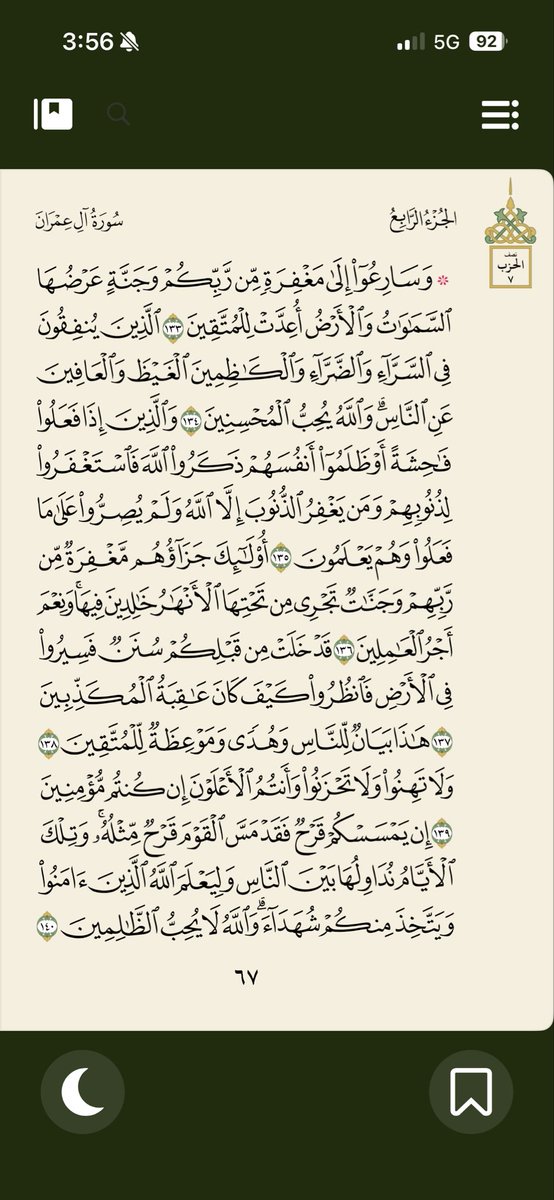 3:56
5G 92
الجُزْءُ الرَّابِعُ
سُورَةُ آلِ عِمْرَانَ
نصف
الحزب
٧
۞ وَسَارِعُوٓا۟ إِلَىٰ مَغْفِرَةٍ مِّن رَّبِّكُمْ وَجَنَّةٍ عَرْضُهَا
ٱلسَّمَـٰوَٰتُ وَٱلْأَرْضُ أُعِدَّتْ لِلْمُتَّقِينَ ١٣٣ ٱلَّذِينَ يُنفِقُونَ
فِى ٱلسَّرَّآءِ وَٱلضَّرَّآءِ وَٱلْكَـٰظِمِينَ ٱلْغَيْظَ وَٱلْعَافِينَ
عَنِ ٱلنَّاسِ ۗ وَٱللَّهُ يُحِبُّ ٱلْمُحْسِنِينَ ١٣٤ وَٱلَّذِينَ إِذَا فَعَلُوا۟
فَـٰحِشَةً أَوْ ظَلَمُوٓا۟ أَنفُسَهُمْ ذَكَرُوا۟ ٱللَّهَ فَٱسْتَغْفَرُوا۟
لِذُنُوبِهِمْ وَمَن يَغْفِرُ ٱلذُّنُوبَ إِلَّا ٱللَّهُ وَلَمْ يُصِرُّوا۟ عَلَىٰ مَا
فَعَلُوا۟ وَهُمْ يَعْلَمُونَ ١٣٥ أُو۟لَـٰٓئِكَ جَزَآؤُهُم مَّغْفِرَةٌ مِّن
رَّبِّهِمْ وَجَنَّـٰتٌ تَجْرِى مِن تَحْتِهَا ٱلْأَنْهَـٰرُ خَـٰلِدِينَ فِيهَا ۚ وَنِعْمَ
أَجْرُ ٱلْعَـٰمِلِينَ ١٣٦ قَدْ خَلَتْ مِن قَبْلِكُمْ سُنَنٌ فَسِيرُوا۟
فِى ٱلْأَرْضِ فَٱنظُرُوا۟ كَيْفَ كَانَ عَـٰقِبَةُ ٱلْمُكَذِّبِينَ
١٣٧ هَـٰذَا بَيَانٌ لِّلنَّاسِ وَهُدًى وَمَوْعِظَةٌ لِّلْمُتَّقِينَ ١٣٨
وَلَا تَهِنُوا۟ وَلَا تَحْزَنُوا۟ وَأَنتُمُ ٱلْأَعْلَوْنَ إِن كُنتُم مُّؤْمِنِينَ
١٣٩ إِن يَمْسَسْكُمْ قَرْحٌ فَقَدْ مَسَّ ٱلْقَوْمَ قَرْحٌ مِّثْلُهُۥ ۚ وَتِلْكَ
ٱلْأَيَّامُ نُدَاوِلُهَا بَيْنَ ٱلنَّاسِ وَلِيَعْلَمَ ٱللَّهُ ٱلَّذِينَ ءَامَنُوا۟
وَيَتَّخِذَ مِنكُمْ شُهَدَآءَ ۗ وَٱللَّهُ لَا يُحِبُّ ٱلظَّـٰلِمِينَ ١٤٠
٦٧